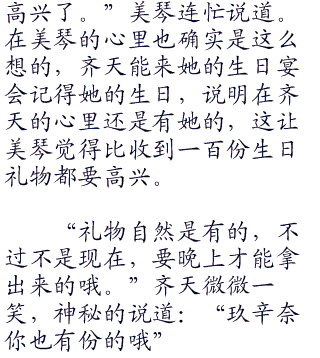 高兴了。”美琴连忙说道。
在美琴的心里也确实是这么
想的，齐天能来她的生日宴
会记得她的生日，说明在齐
天的心里还是有她的，这让
美琴觉得比收到一百份生日
礼物都要高兴。
“礼物自然是有的，不
过不是现在，要晚上才能拿
出来的哦。”齐天微微一
笑，神秘的说道：“玖辛奈
你也有份的哦”